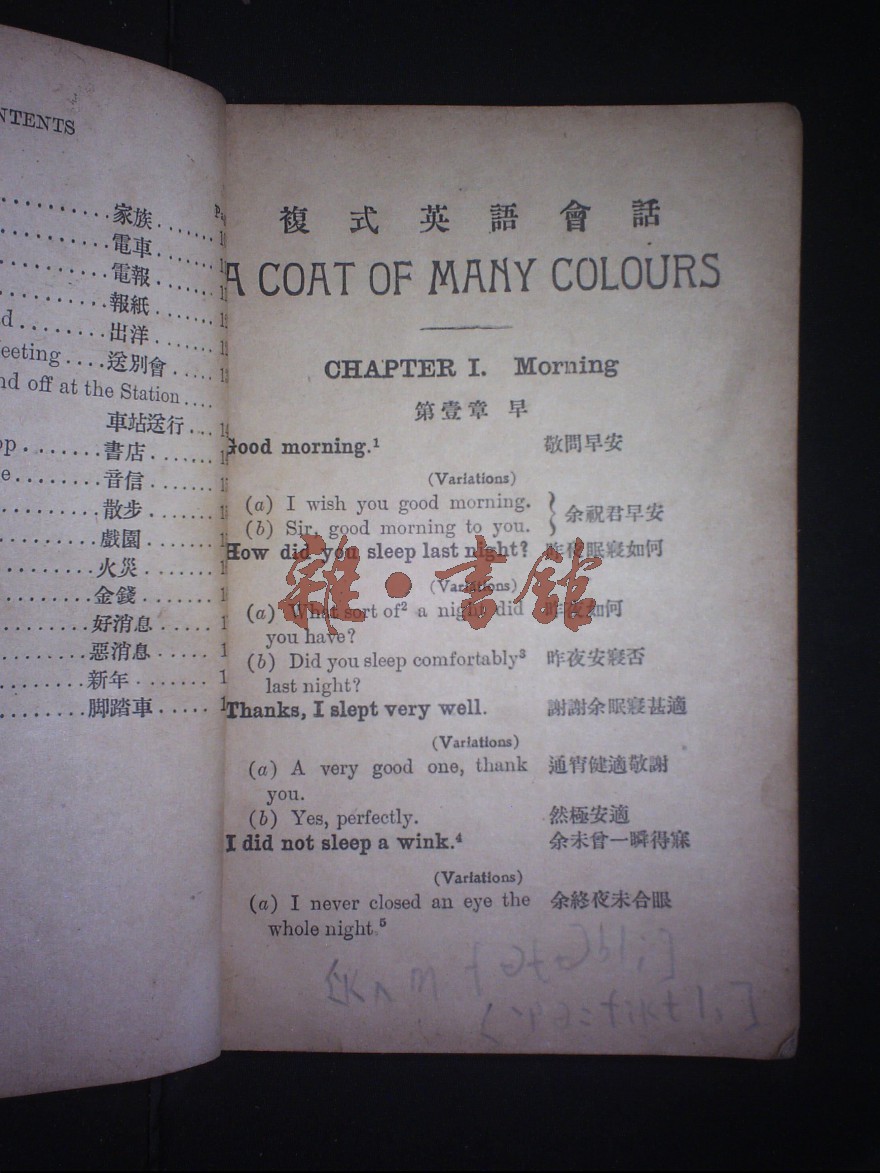 NTENTS
家族
電車
電報
報紙
出洋
eeting....送別會
nd off at the Station....
車站送行
書店
音信
散步
戲園
火災
金錢
好消息
惡消息
新年
脚踏車
複式英語會話
A COAT OF MANY COLOURS
CHAPTER I. Morning
第壹章 早
Good morning.¹ 敬問早安
(Variations)
(a) I wish you good morning.
(b) Sir, good morning to you. 余祝君早安
How did you sleep last night? 昨夜眠寢如何
(Variations)
(a) What sort of² a night did 昨夜如何
you have?
(b) Did you sleep comfortably³ 昨夜安寢否
last night?
Thanks, I slept very well. 謝謝余眠寢甚適
(Variations)
(a) A very good one, thank 通宵健適敬謝
you.
(b) Yes, perfectly. 然極安適
I did not sleep a wink.⁴ 余未曾一瞬得寐
(Variations)
(a) I never closed an eye the 余終夜未合眼
whole night ⁵
雜·書館